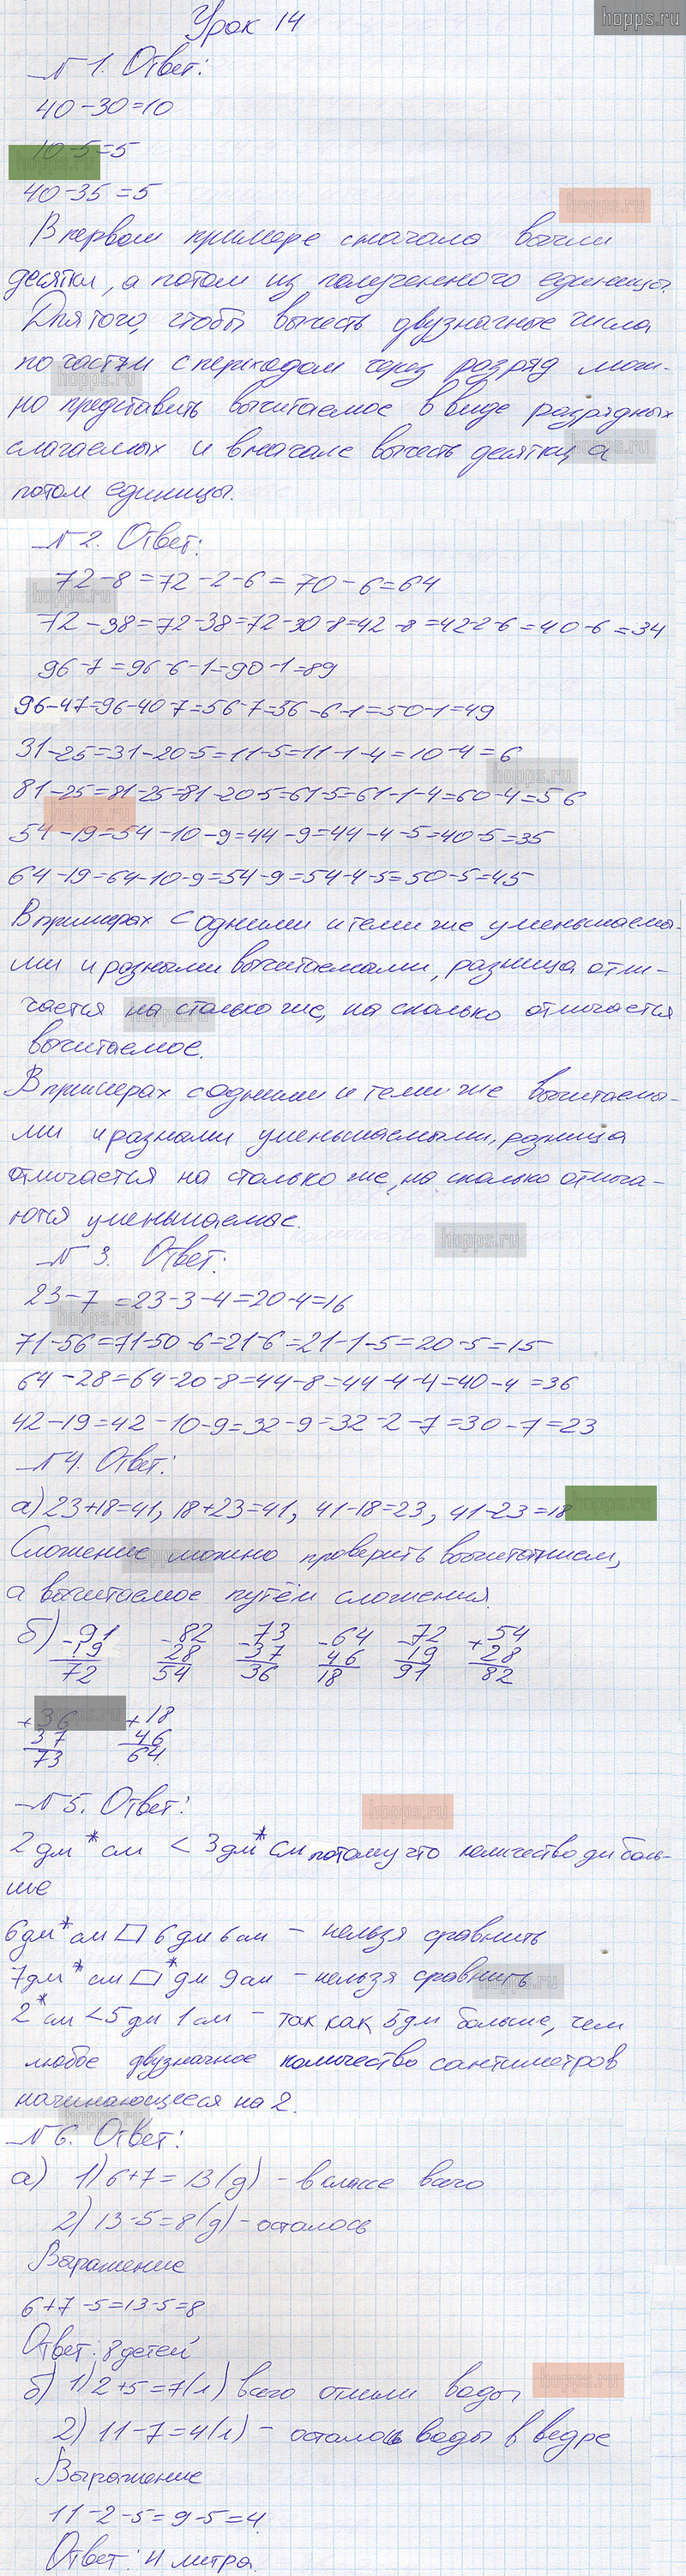 hopps.ru
Урок 14
№ 1. Ответ:
40-30=10
10-5=5
40-35=5
В первом примере сначала вычли
десятки, а потом из полученного единицы.
Для того, чтобы вычесть двузначные числа
по частям с переходом через разряд мож-
но представить вычитаемое в виде разрядных
слагаемых и вначале вычесть десятки, а
потом единицы.
№ 2. Ответ:
72-8=72-2-6=70-6=64
72-38=72-38=72-30-8=42-8=42-2-6=40-6=34
96-7=96-6-1=90-1=89
96-47=96-40-7=56-7=56-6-1=50-1=49
31-25=31-20-5=11-5=11-1-4=10-4=6
81-25=81-25=81-20-5=61-5=61-1-4=60-4=56
54-19=54-10-9=44-9=44-4-5=40-5=35
64-19=64-10-9=54-9=54-4-5=50-5=45
В примерах с одними и теми же уменьшаемы-
ми и разными вычитаемыми, разница отли-
чается на столько же, на сколько отличается
вычитаемое.
В примерах с одними и теми же вычитаемы-
ми и разными уменьшаемыми, разница
отличается на столько же, на сколько отлича-
ются уменьшаемые.
№ 3. Ответ:
23-7=23-3-4=20-4=16
71-56=71-50-6=21-6=21-1-5=20-5=15
64-28=64-20-8=44-8=44-4-4=40-4=36
42-19=42-10-9=32-9=32-2-7=30-7=23
№ 4. Ответ:
а) 23+18=41, 18+23=41, 41-18=23, 41-23=18
Сложение можно проверить вычитанием,
а вычитаемое путём сложения.
б) -91 -82 -73 -64 -72 +54
19 28 37 46 19 28
72 54 36 18 91 82
+36 +18
37 46
73 64
№ 5. Ответ:
2 дм * см < 3 дм * см потому что количество дм боль-
ше
6 дм * см □ 6 дм 6 см - нельзя сравнить
7 дм * см □ * дм 9 см - нельзя сравнить
2 * см < 5 дм 1 см - так как 5 дм больше, чем
любое двузначное количество сантиметров
начинающееся на 2.
№ 6. Ответ:
а) 1) 6+7=13 (д) - в классе всего
2) 13-5=8 (д) - осталось
Выражение
6+7-5=13-5=8
Ответ: 8 детей
б) 1) 2+5=7 (л) всего отлили воды
2) 11-7=4 (л) - осталось воды в ведре
Выражение
11-2-5=9-5=4
Ответ: 4 литра.